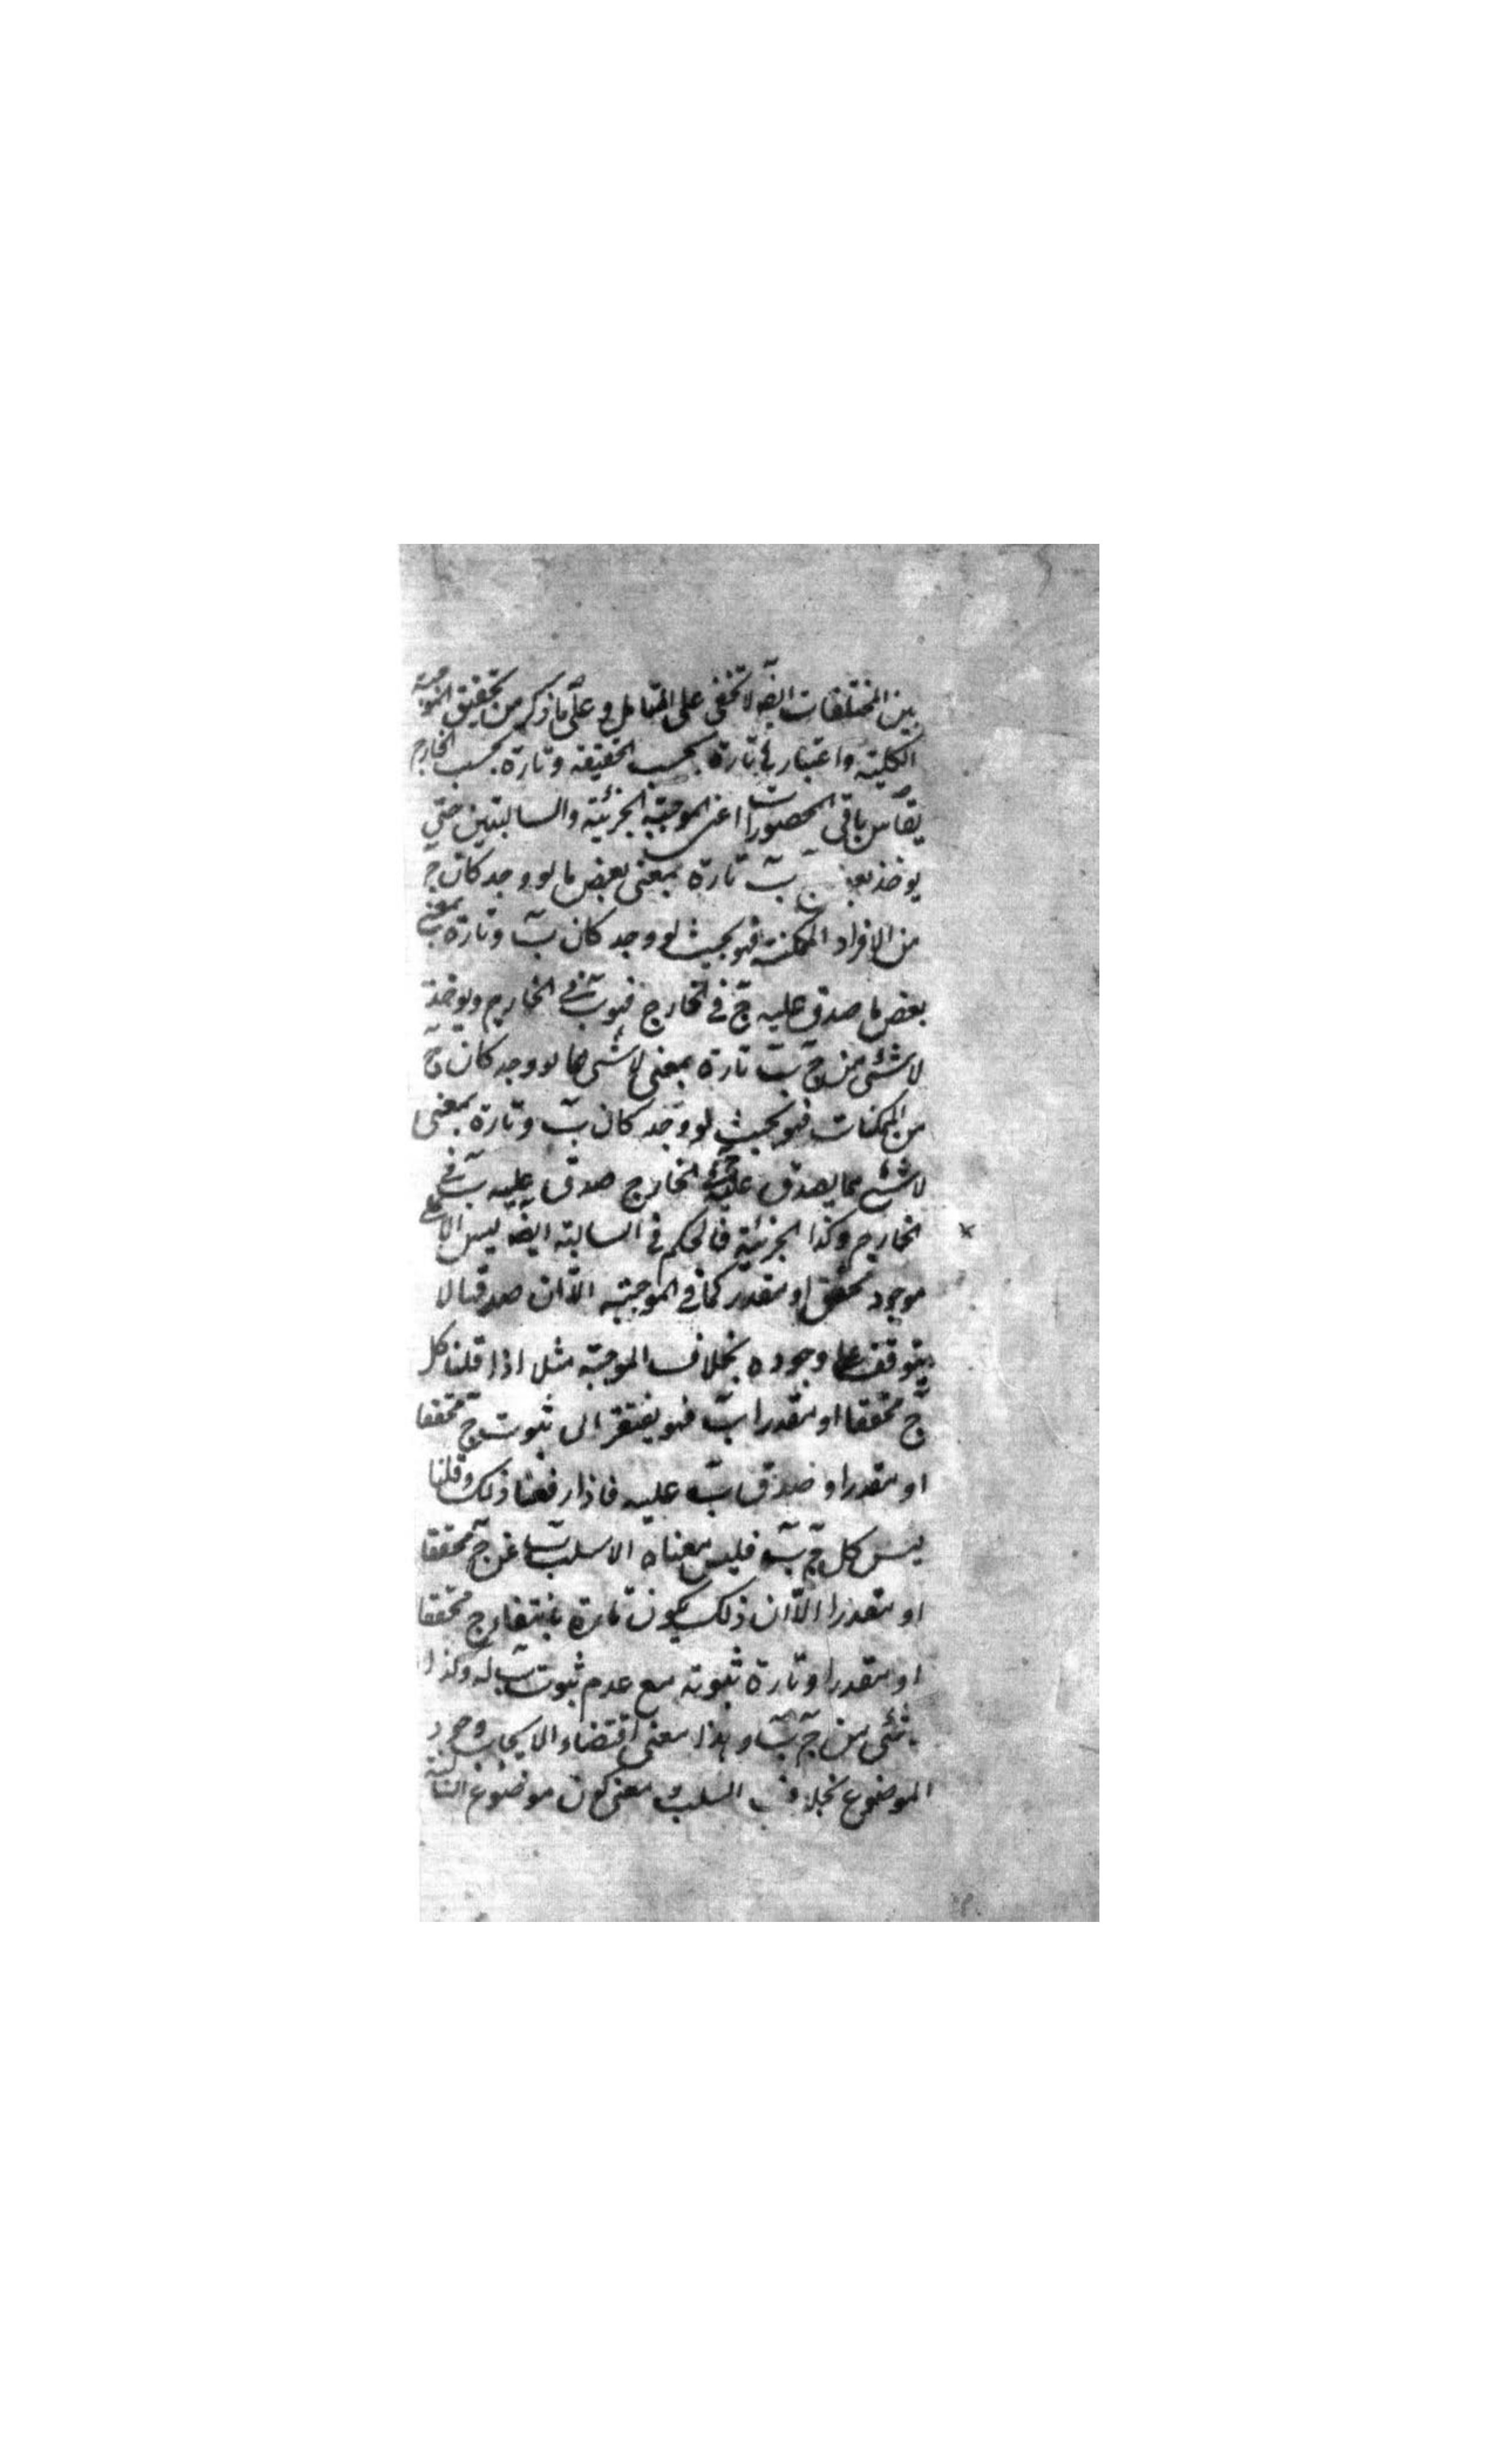 بين المختلفات ايضه لا تخفى على المتامل وعلى ما ذكر من تحقيق الموجبة
الكلية واعتبارها تارة بحسب الحقيقه وتارة بحسب الخارج
يقاس باقى المحصورات اعنى الموجبة الجزئية والسالبتين حتى
يوخذ بعض ج ب تارة بمعنى بعض ما لو وجد كان ج
من الافراد الممكنة فهو بحيث لو وجد كان ب وتارة بمعنى
بعض ما صدق عليه ج فى الخارج فهو ب فى الخارج ويوخذ
لا شئ من ج ب تارة بمعنى لا شى مما لو وجد كان ج
من الممكنات فهو بحيث لو وجد كان ب وتارة بمعنى
لا شئ مما يصدق عليه ج فى الخارج صدق عليه ب فى
الخارج وكذا الجزئية فالحكم فى السالبة ايضه ليس الا على
موجود محقق او مقدر كما فى الموجبة الا ان صدقها لا
يتوقف على وجوده بخلاف الموجبة مثلا اذا قلنا كل
ج محققا او مقدرا ب فهو يفتقر الى ثبوت ج محققا
او مقدرا وصدق ب عليه فاذا رفعنا ذلك وقلنا
ليس كل ج ب فليس معناه الا سلب ب عن ج محققا
او مقدرا الا ان ذلك يكون تارة بانتفاء ج محققا
او مقدرا وتارة ثبوته مع عدم ثبوت ب له وكذا لا
شئى من ج ب وهذا معنى اقتضاء الايجاب وجود
الموضوع بخلاف السلب ومعنى كون موضوع السالبة